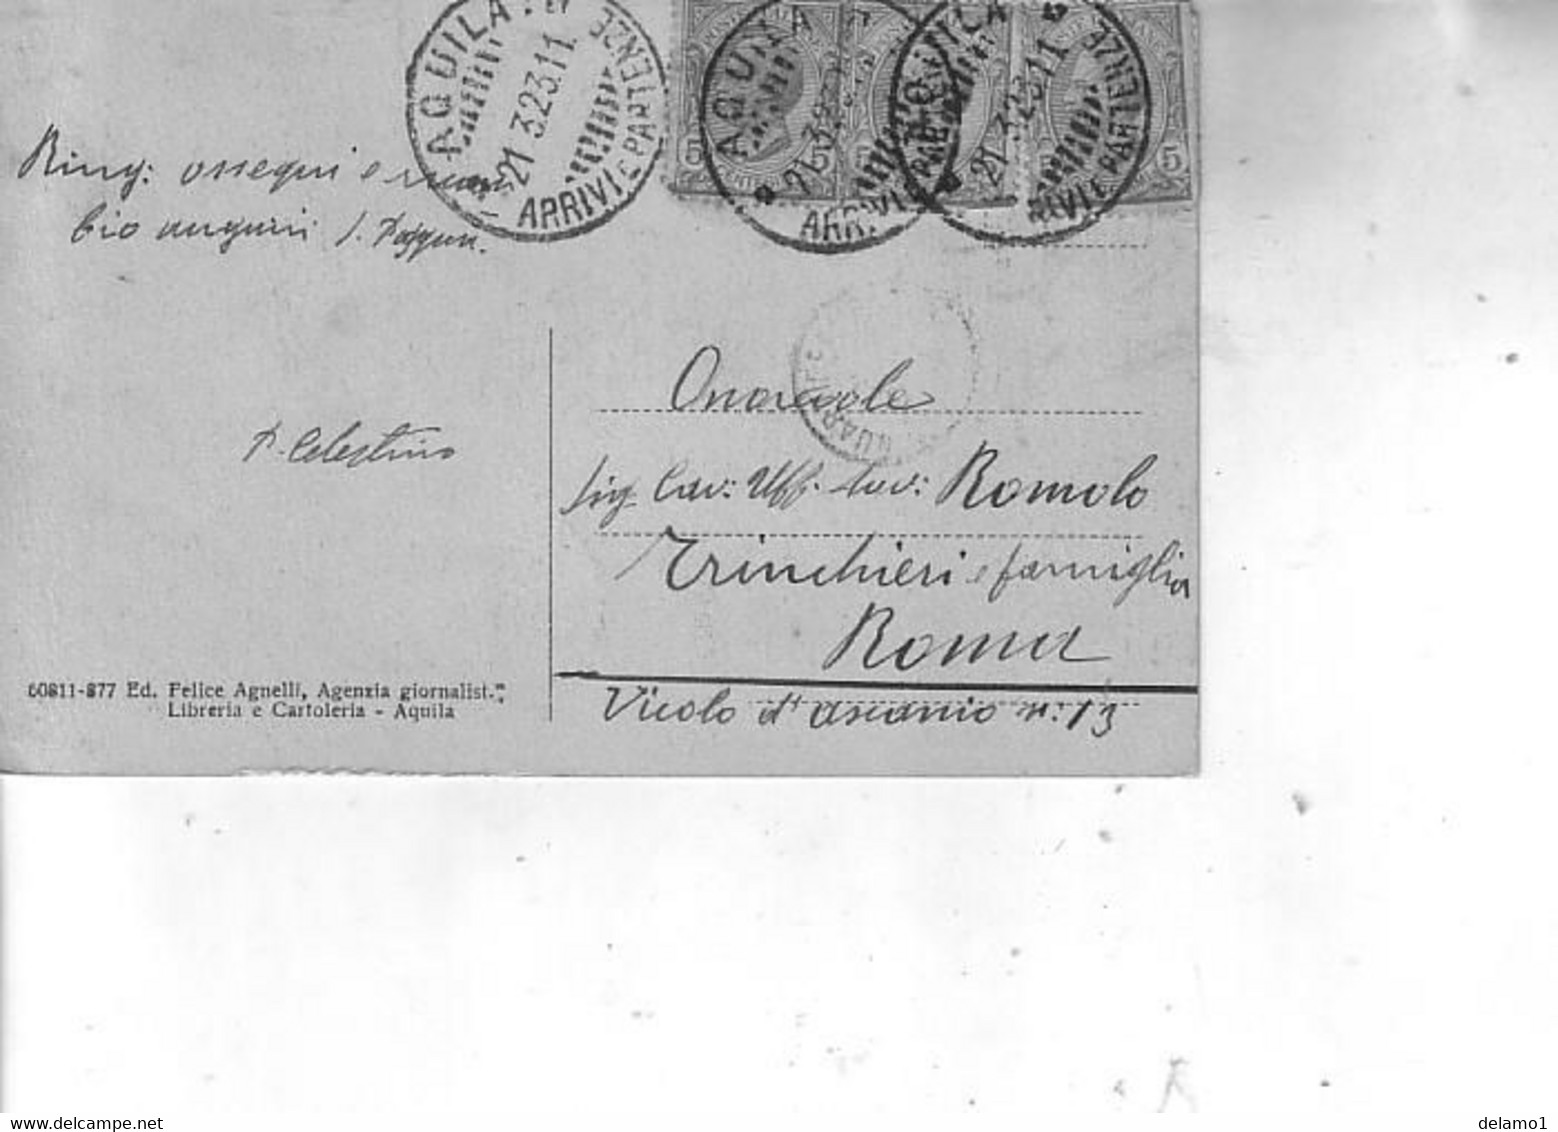 AQUILA
21.3.23.11
ARRIVI E PARTENZE
AQUILA
21.3.23
ARRIVI
AQUILA
21.3.23.11
ARRIVI E PARTENZE
5 5
5
Ring: ossequi e ricam
bio auguri
Onorevole
P. Celestino
Sig. Cav: Uff. Avv: Romolo
Trinchieri e famiglia
Roma
Vicolo d'Ascanio n: 13
60811-877 Ed. Felice Agnelli, Agenzia giornalist.
Libreria e Cartoleria - Aquila
www.delcampe.net
delamo1